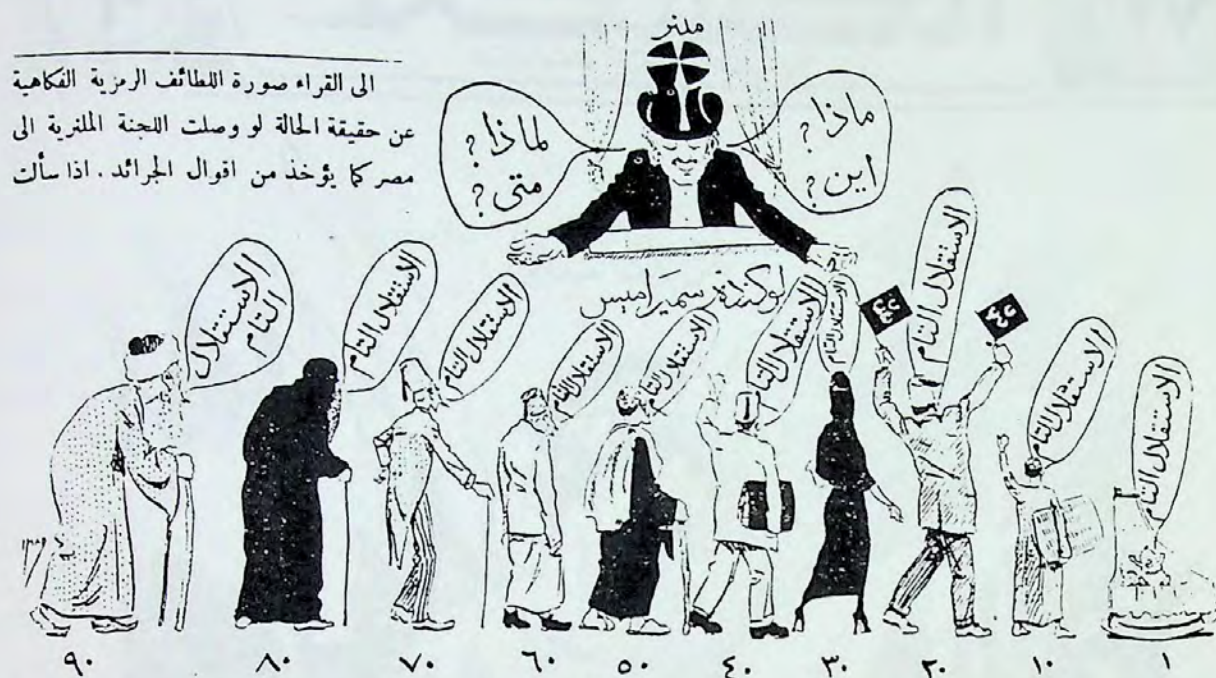 ملنر
الى القراء صورة اللطائف الرمزية الفكاهية
عن حقيقة الحالة لو وصلت اللجنة الملنرية الى
مصر كما يؤخذ من اقوال الجرائد . اذا سألت
ماذا ؟
اين ؟
لماذا ؟
متى ؟
لوكندة سميراميس
الاستقلال التام
الاستقلال التام
الاستقلال التام
الاستقلال التام
الاستقلال التام
الاستقلال التام
الاستقلال التام
الاستقلال التام
الاستقلال
التام
الاستقلال التام
١ ١٠ ٢٠ ٣٠ ٤٠ ٥٠ ٦٠ ٧٠ ٨٠ ٩٠